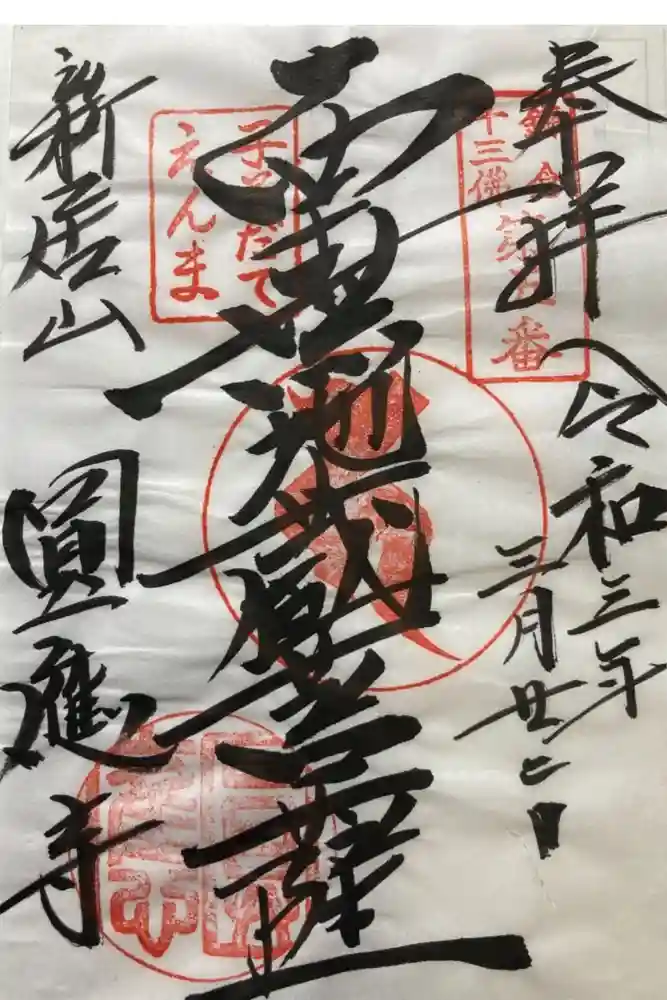 奉拝 令和三年
三月廿二日
鎌倉
十三佛
第五番
南無地蔵菩薩
子そだて
えんま
新居山 圓應寺